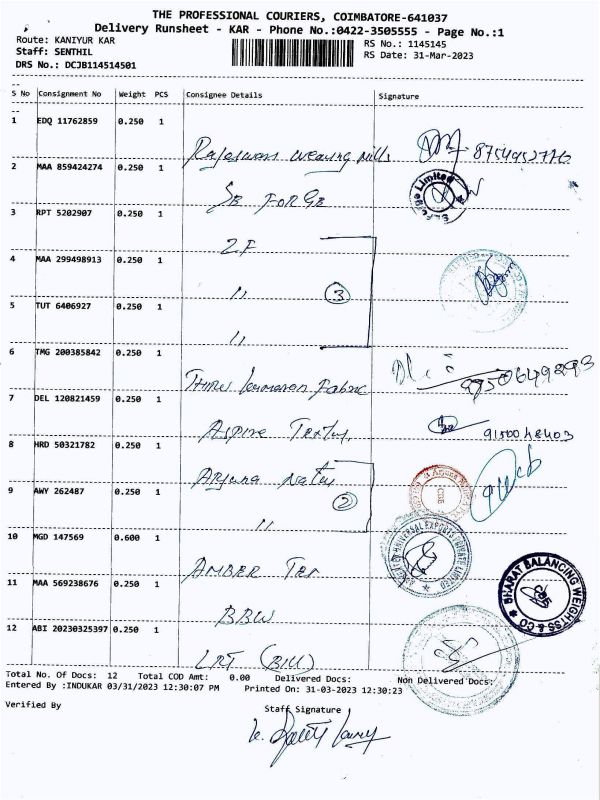 THE PROFESSIONAL COURIERS, COIMBATORE-641037
Delivery Runsheet - KAR - Phone No.:0422-3505555 - Page No.:1
Route: KANIYUR KAR
RS No.: 1145145
Staff: SENTHIL
RS Date: 31-Mar-2023
DRS No.: DCJB114514501
S No Consignment No Weight PCS Consignee Details Signature
1 EDQ 11762859 0.250 1
Mills
2 MAA 859424274 0.250 1
SE FORGE
3 RPT 5202907 0.250 1
ZF
4 MAA 299498913 0.250 1
" 3
5 TUT 6406927 0.250 1
"
6 TMG 200385842 0.250 1
Fabric 9750649293
7 DEL 120821459 0.250 1
Aspire
8 HRD 50321782 0.250 1
Arjuna
9 AWY 262487 0.250 1
" 2
10 MGD 147569 0.600 1
AMBER Tex
UNIVERSAL EXPORTS PRIVATE LIMITED
11 MAA 569238676 0.250 1
BBW
BHARAT BALANCING WEIGHTSS & CO
12 ABI 20230325397 0.250 1
LRT (Bill)
Total No. Of Docs: 12 Total COD Amt: 0.00 Delivered Docs: Non Delivered Docs:
Entered By :INDUKAR 03/31/2023 12:30:07 PM Printed On: 31-03-2023 12:30:23
Verified By
Staff Signature